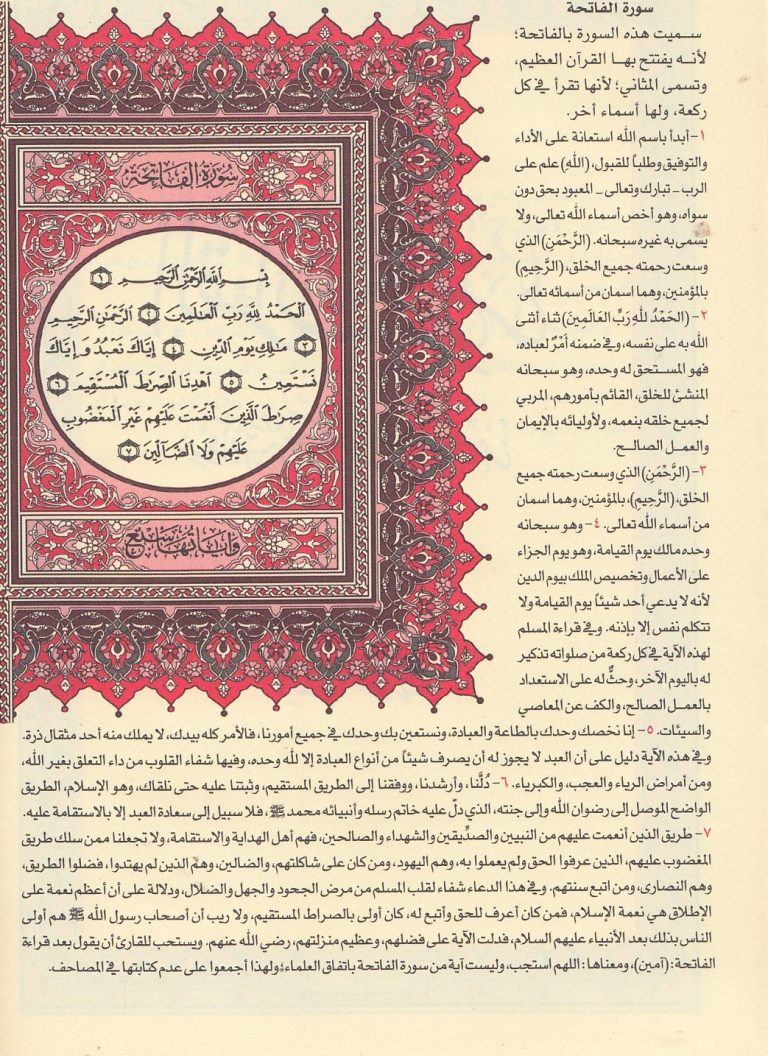 سورة الفاتحة
سميت هذه السورة بالفاتحة؛
لأنه يفتتح بها القرآن العظيم،
وتسمى المثاني؛ لأنها تقرأ في كل
ركعة، ولها أسماء أخر.
١- أبدأ باسم الله استعانة على الأداء
والتوفيق وطلباً للقبول، (اللهِ) علم على
الرب ـ تبارك وتعالى ـ المعبود بحق دون
سواه، وهو أخص أسماء الله تعالى، ولا
يسمى به غيره سبحانه. (الرَّحْمَنِ) الذي
وسعت رحمته جميع الخلق، (الرَّحِيمِ)
بالمؤمنين، وهما اسمان من أسمائه تعالى.
٢- (الحَمْدُ للهِ رَبِّ العَالَمِينَ) ثناء أثنى
الله به على نفسه، وفي ضمنه أَمْرٌ لعباده،
فهو المستحق له وحده، وهو سبحانه
المنشئ للخلق، القائم بأمورهم، المربي
لجميع خلقه بنعمه، ولأوليائه بالإيمان
والعمل الصالح.
٣- (الرَّحْمَنِ) الذي وسعت رحمته جميع
الخلق، (الرَّحِيمِ)، بالمؤمنين، وهما اسمان
من أسماء الله تعالى. ٤- وهو سبحانه
وحده مالك يوم القيامة، وهو يوم الجزاء
على الأعمال وتخصيص الملك بيوم الدين
لأنه لا يدعي أحد شيئاً يوم القيامة ولا
تتكلم نفس إلا بإذنه. وفي قراءة المسلم
لهذه الآية في كل ركعة من صلواته تذكير
له باليوم الآخر، وحثٌّ له على الاستعداد
بالعمل الصالح، والكف عن المعاصي
والسيئات. ٥- إنا نخصك وحدك بالطاعة والعبادة، ونستعين بك وحدك في جميع أمورنا، فالأمر كله بيدك، لا يملك منه أحد مثقال ذرة.
وفي هذه الآية دليل على أن العبد لا يجوز له أن يصرف شيئاً من أنواع العبادة إلا لله وحده، وفيها شفاء القلوب من داء التعلق بغير الله،
ومن أمراض الرياء والعجب، والكبرياء. ٦- دُلَّنا، وأرشدنا، ووفقنا إلى الطريق المستقيم، وثبتنا عليه حتى نلقاك، وهو الإسلام، الطريق
الواضح الموصل إلى رضوان الله وإلى جنته، الذي دلّ عليه خاتم رسله وأنبيائه محمد ﷺ، فلا سبيل إلى سعادة العبد إلا بالاستقامة عليه.
٧- طريق الذين أنعمت عليهم من النبيين والصدِّيقين والشهداء والصالحين، فهم أهل الهداية والاستقامة، ولا تجعلنا ممن سلك طريق
المغضوب عليهم، الذين عرفوا الحق ولم يعملوا به، وهم اليهود، ومن كان على شاكلتهم، والضالين، وهم الذين لم يهتدوا، فضلوا الطريق،
وهم النصارى، ومن اتبع سنتهم. وفي هذا الدعاء شفاء لقلب المسلم من مرض الجحود والجهل والضلال، ودلالة على أن أعظم نعمة على
الإطلاق هي نعمة الإسلام، فمن كان أعرف للحق وأتبع له، كان أولى بالصراط المستقيم، ولا ريب أن أصحاب رسول الله ﷺ هم أولى
الناس بذلك بعد الأنبياء عليهم السلام، فدلت الآية على فضلهم، وعظيم منزلتهم، رضي الله عنهم. ويستحب للقارئ أن يقول بعد قراءة
الفاتحة: (آمين)، ومعناها: اللهم استجب، وليست آية من سورة الفاتحة باتفاق العلماء؛ ولهذا أجمعوا على عدم كتابتها في المصاحف.
سُورَةُ الفَاتِحَةِ
بِسْمِ ٱللَّهِ ٱلرَّحْمَٰنِ ٱلرَّحِيمِ ١
ٱلْحَمْدُ لِلَّهِ رَبِّ ٱلْعَٰلَمِينَ ٢ ٱلرَّحْمَٰنِ ٱلرَّحِيمِ
٣ مَٰلِكِ يَوْمِ ٱلدِّينِ ٤ إِيَّاكَ نَعْبُدُ وَإِيَّاكَ
نَسْتَعِينُ ٥ ٱهْدِنَا ٱلصِّرَٰطَ ٱلْمُسْتَقِيمَ ٦
صِرَٰطَ ٱلَّذِينَ أَنْعَمْتَ عَلَيْهِمْ غَيْرِ ٱلْمَغْضُوبِ
عَلَيْهِمْ وَلَا ٱلضَّآلِّينَ ٧
وَآيَاتُهَا سَبْعٌ